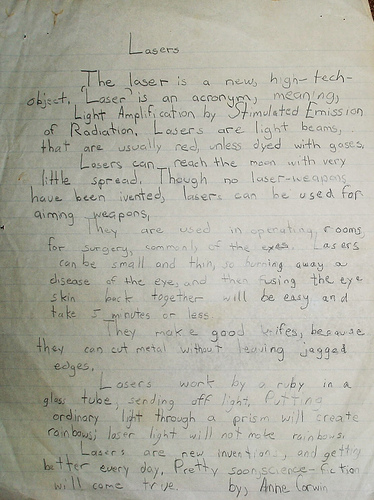 Lasers
The laser is a new, high-tech-
object. "Laser" is an acronym, meaning,
Light Amplification by Stimulated Emission
of Radiation. Lasers are light beams,
that are usually red, unless dyed with gases.
Lasers can reach the moon with very
little spread. Though no laser-weapons
have been ivented, lasers can be used for
aiming weapons.
They are used in operating rooms
for surgery, commonly of the eyes. Lasers
can be small and thin, so burning away a
disease of the eye, and then fusing the eye
skin back together will be easy and
take 5 minutes or less
They make good knifes, because
they can cut metal without leaving jagged
edges.
Lasers work by a ruby in a
glass tube, sending off light. Putting
ordinary light through a prism will create
rainbows; laser light will not make rainbows.
Lasers are new inventions, and getting
better every day. Pretty soon science-fiction
will come true. by, Anne Corwin